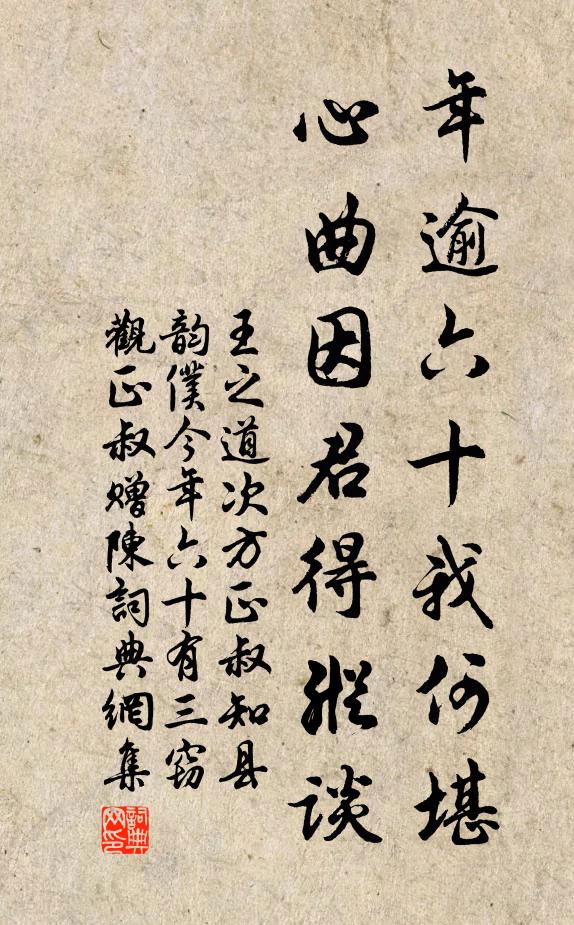 年逾六十我何堪
心曲因君得縱談
王之道次方正叔知县
韵僕今年六十有三窃
觀正叔赠陳詞典網集
詞典网印